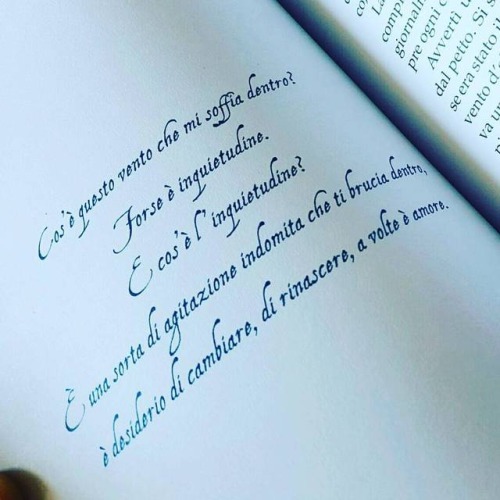 Cos'è questo vento che mi soffia dentro?
Forse è inquietudine.
E cos'è l'inquietudine?
È una sorta di agitazione indomita che ti brucia dentro,
è desiderio di cambiare, di rinascere, a volte è amore.
comp
giornali
pre ogni c
Avvertì u
dal petto. Si s
se era stato il
vento d'
va u